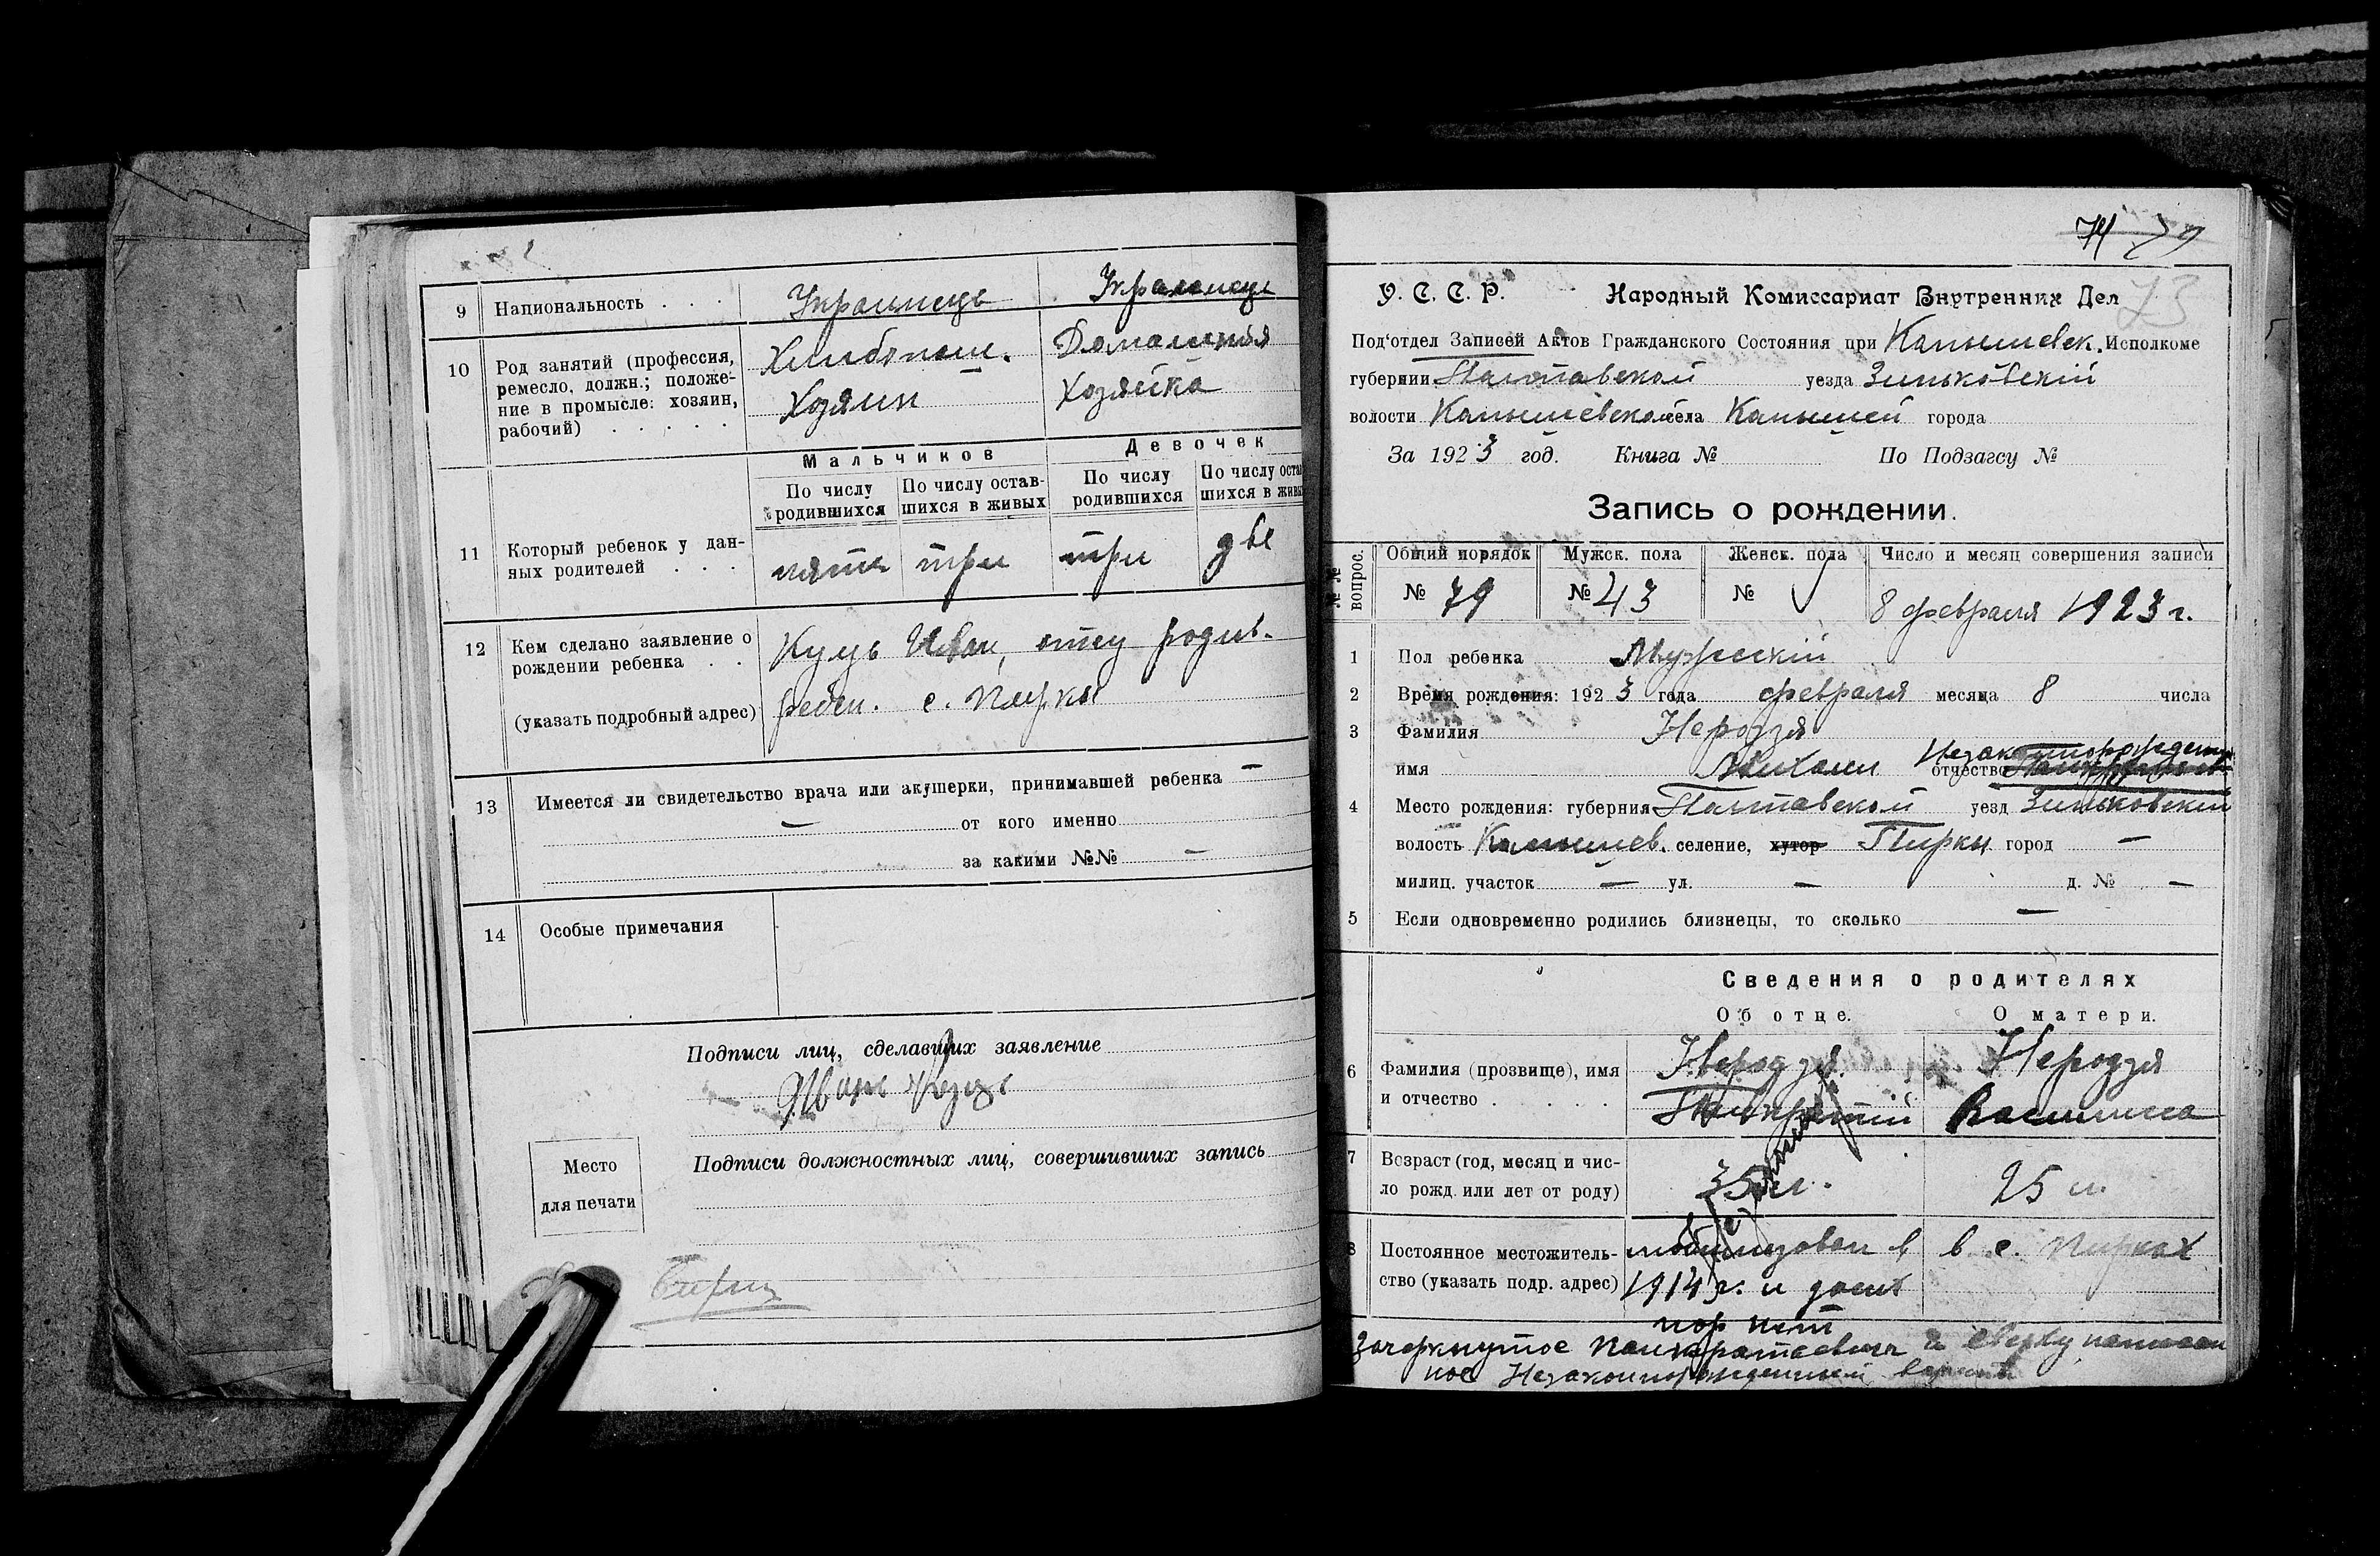 9 Национальность . . . Украинець Украинец
10 Род занятий (профессия, Хлибопаш. Домашняя
ремесло, должн.; положе-
ние в промысле: хозяин, Хозяин Хозяйка
рабочий) . . . . .
Мальчиков Девочек
По числу родившихся По числу остав-шихся в живых По числу родившихся По числу оста шихся в живы
11 Который ребенок у дан-
ных родителей . . . пять три три две
12 Кем сделано заявление о Куць Иван, отец родив.
рождении ребенка . .
(указать подробный адрес) ребен. с. Пирки
13 Имеется ли свидетельство врача или акушерки, принимавшей ребенка —
— от кого именно
за какими №№ —
14 Особые примечания
Подписи лиц, сделавших заявление
Иван Куць
Место
для печати
Подписи должностных лиц, совершивших запись
74
73
У. С. С. Р. Народный Комиссариат Внутренних Дел
Под'отдел Записей Актов Гражданского Состояния при Камышевск. Исполкоме
губернии Полтавской уезда Зиньковский
волости Камышевской села Камышей города
За 1923 год. Книга № По Подзагсу №
Запись о рождении.
№№ вопрос. Общий порядок Мужск. пола Женск. пола Число и месяц совершения записи
№ 79 № 43 № 8 февраля 1923 г.
1 Пол ребенка Мужеский
2 Время рождения: 1923 года февраля месяца 8 числа
3 Фамилия Неродзя
Незаконнорожденн
имя Михаил отчество
4 Место рождения: губерния Полтавской уезд Зиньковский
волость Камышев. селение, хутор Пирки город —
милиц. участок — ул. — д. № —
5 Если одновременно родились близнецы, то сколько —
Сведения о родителях
Об отце. О матери.
6 Фамилия (прозвище), имя Неродзя Неродзя
и отчество . . . . Панкратий Василиса
7 Возраст (год, месяц и чис-
ло рожд. или лет от роду) 35 л. 25 л.
8 Постоянное местожитель- мобилизован в в с. Пирках
ство (указать подр. адрес) 1914 г. и до сих
пор нет
Зачеркнутое Панкратаевич и сверху написан
ное Незаконнорожденный верить